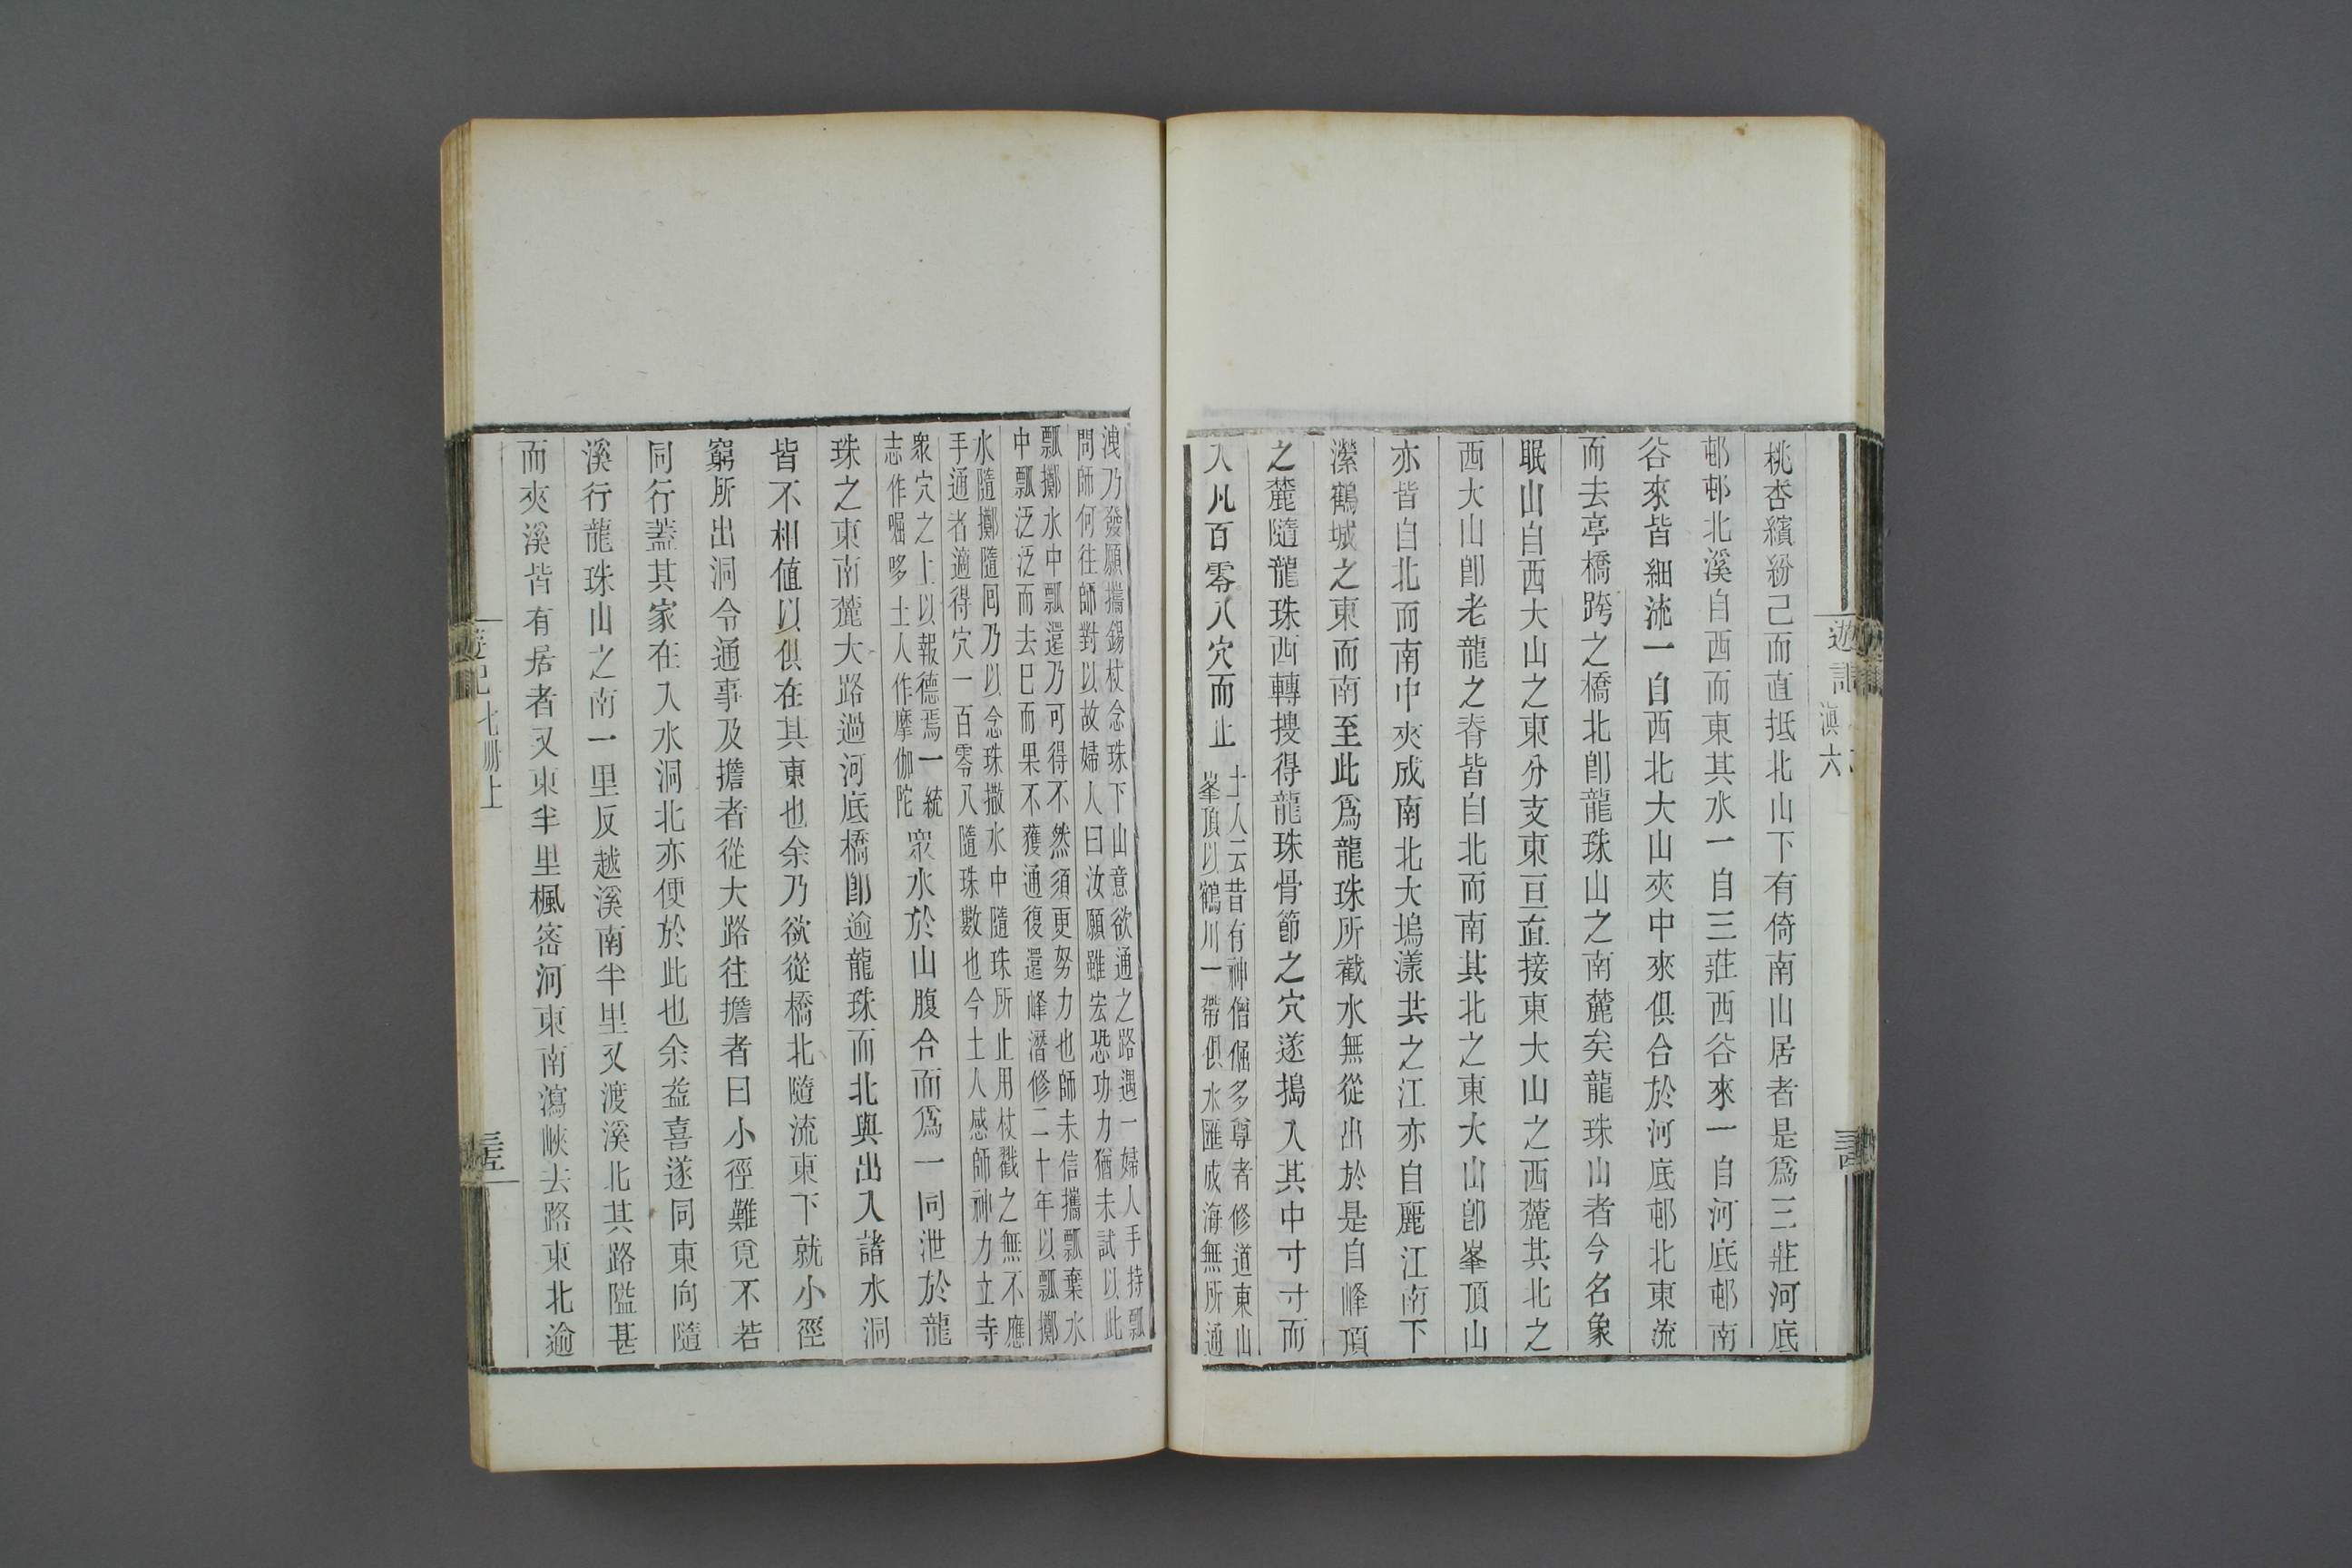 遊記
滇六
桃杏繽紛己而直抵北山下有倚南山居者是爲三莊河底
邨邨北溪自西而東其水一自三莊西谷來一自河底邨南
谷來皆細流一自西北大山夾中來俱合於河底邨北東流
而去亭橋跨之橋北卽龍珠山之南麓矣龍珠山者今名象
眠山自西大山之東分支東亘直接東大山之西麓其北之
西大山卽老龍之脊皆自北而南其北之東大山卽峯頂山
亦皆自北而南中夾成南北大塢漾共之江亦自麗江南下
瀠鶴城之東而南至此爲龍珠所截水無從出於是自峰頂
之麓隨龍珠西轉搜得龍珠骨節之穴遂搗入其中寸寸而
入凡百零八穴而止
土人云昔有神僧倔多尊者修道東山
峯頂以鶴川一帶俱水匯成海無所通
洩乃發願攜錫杖念珠下山意欲通之路遇一婦人手持瓢
問師何往師對以故婦人曰汝願雖宏恐功力猶未試以此
瓢擲水中瓢還乃可得不然須更努力也師未信攜瓢棄水
中瓢泛泛而去已而果不獲通復還峰潛修二十年以瓢擲
水隨擲隨回乃以念珠撒水中隨珠所止用杖戳之無不應
手通者適得穴一百零八隨珠數也今土人感師神力立寺
衆穴之上以報德焉一統
志作崛哆土人作摩伽陀
衆水於山腹合而爲一同泄於龍
珠之東南麓大路過河底橋卽逾龍珠而北與出入諸水洞
皆不相値以俱在其東也余乃欲從橋北隨流東下就小徑
窮所出洞令通事及擔者從大路往擔者曰小徑難覓不若
同行蓋其家在入水洞北亦便於此也余益喜遂同東向隨
溪行龍珠山之南一里反越溪南半里又渡溪北其路隘甚
而夾溪皆有居者又東半里楓密河東南瀉峽去路東北逾
遊記七冊上
三五